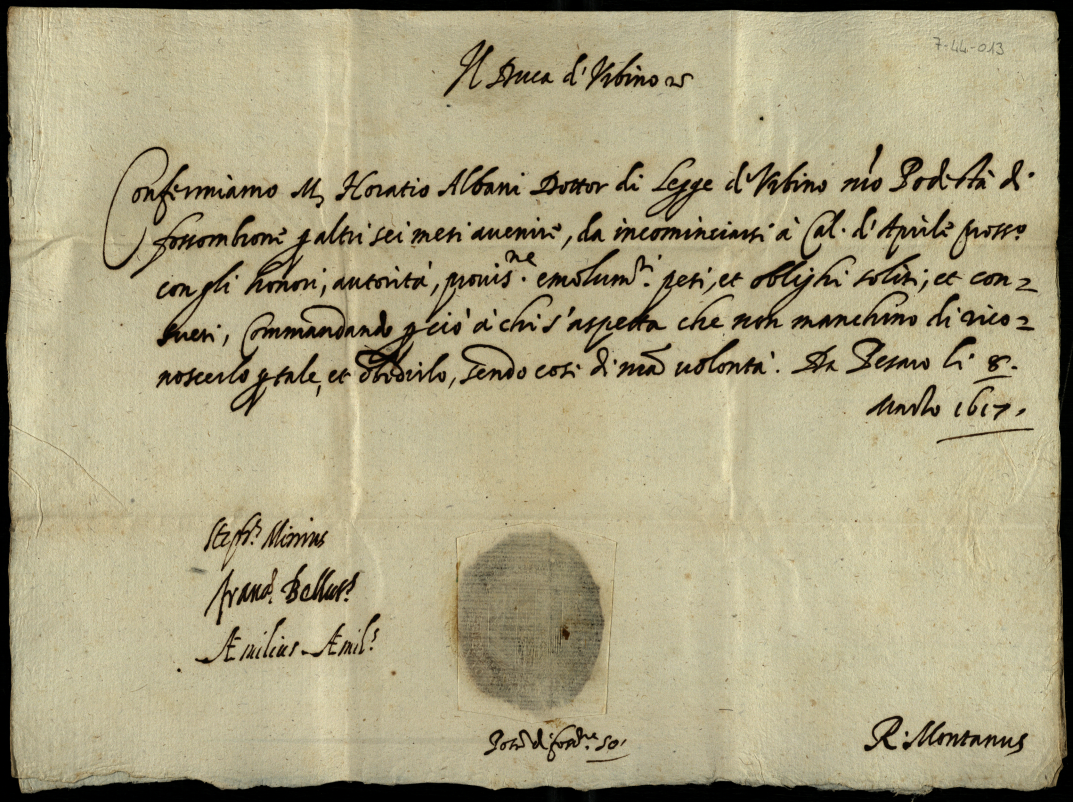 7-44-013
Il Duca d'Urbino
Confermiamo M. Horatio Albani Dottor di Legge d'Urbino nro Podestà di
fossombrone p altri sei mesi avenire, da incominciarsi à Cal. d'Aprile pross.o
con gli honori, autorità, provis.ne emolum.ti pesi, et oblighi soliti, et con=
sueti, Commandando p ciò à chi s'aspetta che non manchino di rico=
noscerlo p tale, et obedirlo, sendo cosi di nra volontà. Da Pesaro li 8.
Marzo 1617.
Minius
Æmilius Æmil.s
R. Montanus